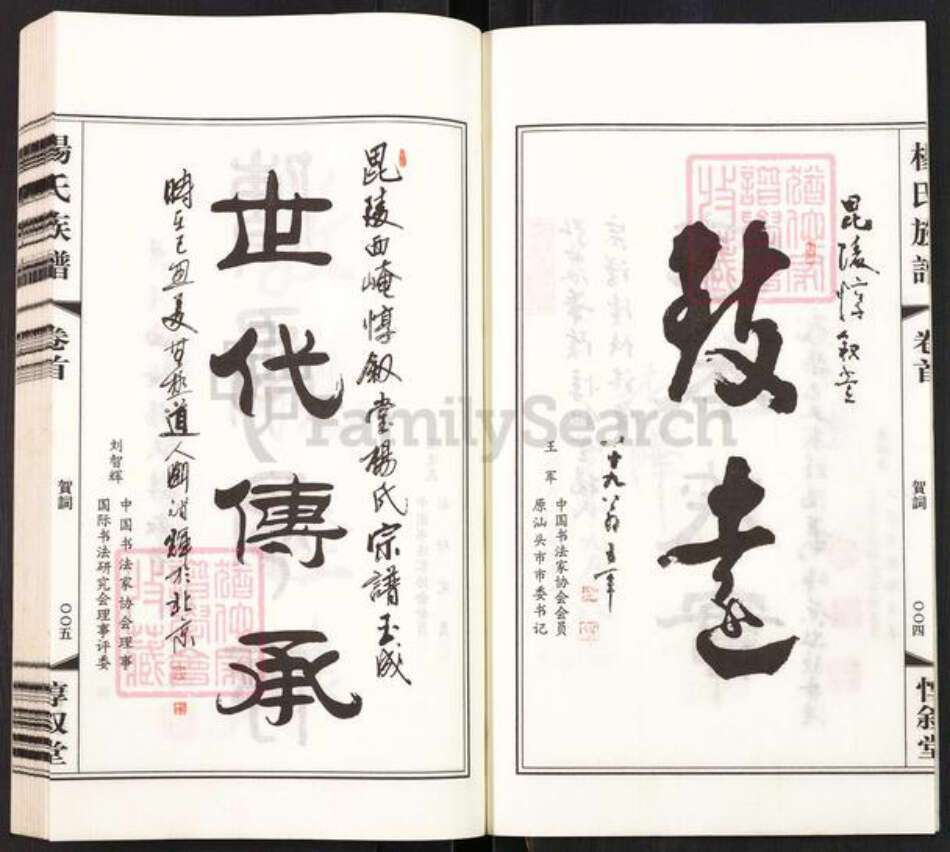 楊氏族譜
卷首
賀詞
〇〇四
惇敘堂
毘陵惇敘堂
致遠
八十九翁王军
王军
中国书法家协会会员
原汕头市市委书记
毘陵西崦惇敘堂楊氏宗譜玉成
世代傳承
道人劉智輝於北京
刘智辉
中国书法家协会理事
国际书法研究会理事评委
楊氏族譜
卷首
賀詞
〇〇五
惇叙堂
FamilySearch